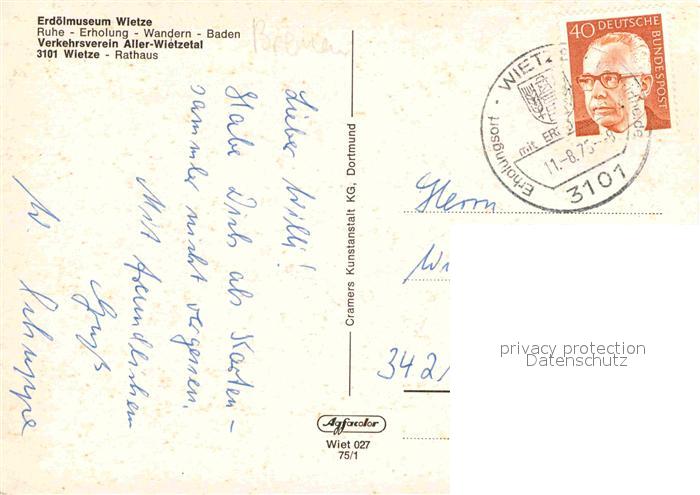 Erdölmuseum Wietze
Ruhe - Erholung - Wandern - Baden
Verkehrsverein Aller-Wietzetal
3101 Wietze - Rathaus
Bremen
Lieber Willi!
Habe Dich als Karten-
sammler nicht vergessen.
Mit freundlichem
Gruß
W.
Cramers Kunstanstalt KG, Dortmund
Agfacolor
Wiet 027
75/1
40 DEUTSCHE BUNDESPOST
Erholungsort - WIETZ
mit ER
11.-8.75--
3101
Herrn
Wi
342
privacy protection
Datenschutz